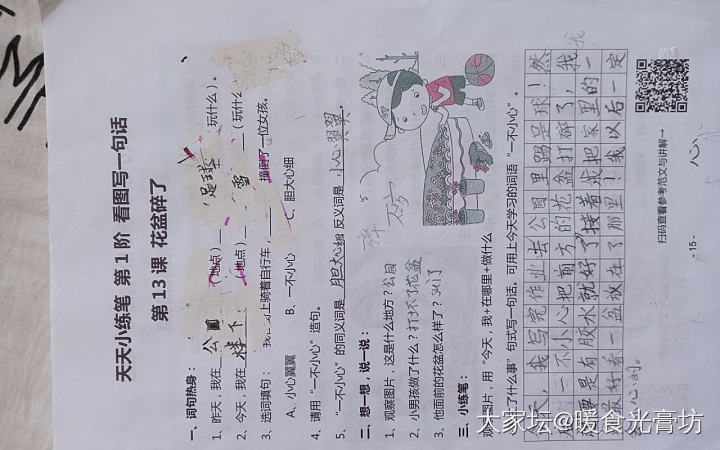 天天小练笔 第1阶 看图写一句话
第13课 花盆碎了
一、词句热身：
1、昨天，我在 公园 （地点） 足球 （玩什么）。
2、今天，我在 楼下 （地点） 雪 （玩什么
3、选词填句： 上骑着自行车， 撞倒了一位女孩。
A、小心翼翼 B、一不小心 C、胆大心细
4、请用“一不小心”造句。
5、“一不小心”的同义词是 反义词是 小心翼翼。
二、想一想，说一说：
1、观察图片，这是什么地方？公园
2、小男孩做了什么？打坏了花盆
3、他面前的花盆怎么样了？
三、小练笔：
图片，用“今天，我+在哪里+做什么
了什么事”句式写一句话。可用上今天学习的词语“一不小心”。
天，我写完作业去公园里踢足球！然
一不小心把前方的花盆打碎了，我
要是有胶水就好了接着我把家里的一
最好看一盆放在了那里！我以后一定
心的。
扫码查看参考范文与讲解→
- 15 -
大家坛@暖食光膏坊